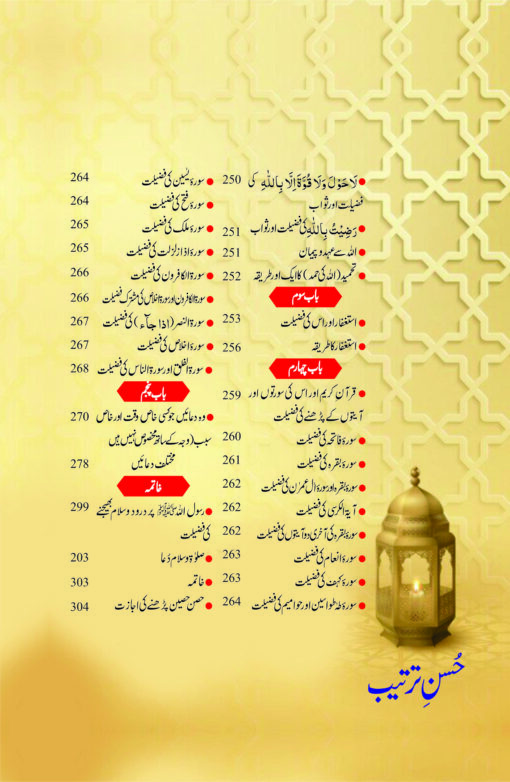 لَاحَوْلَ وَلَا قُوَّةَ اِلَّا بِاللّٰهِ کی 250
فضیلت اور ثواب
رَضِیْتُ بِاللّٰهِ کی فضیلت اور ثواب 251
اللہ سے عہد و پیمان 251
تحمید (اللہ کی حمد) کا ایک اور طریقہ 252
باب سوم
استغفار اور اس کی فضیلت 253
استغفار کا طریقہ 256
باب چہارم
قرآن کریم اور اس کی سورتوں اور 259
آیتوں کے پڑھنے کی فضیلت
سورۂ فاتحہ کی فضیلت 260
سورۂ بقرہ کی فضیلت 261
سورۂ بقرہ اور سورۂ ال عمرٰن کی فضیلت 262
آیۃ الکرسی کی فضیلت 262
سورۂ بقرہ کی آخری دو آیتوں کی فضیلت 262
سورۂ انعام کی فضیلت 263
سورۂ کہف کی فضیلت 263
سورۂ طٰہٰ طواسین اور حوامیم کی فضیلت 264
سورۂ یٰسین کی فضیلت 264
سورۂ فتح کی فضیلت 264
سورۂ ملک کی فضیلت 265
سورۂ اذا زلزلت کی فضیلت 265
سورۂ الکافرون کی فضیلت 266
سورۂ الکافرون اور سورۂ اخلاص کی مشترک فضیلت 266
سورۃ النصر (اذا جآء) کی فضیلت 267
سورۂ اخلاص کی فضیلت 267
سورۃ الفلق اور سورۃ الناس کی فضیلت 268
باب پنجم
وہ دعائیں جو کسی خاص وقت اور خاص 270
سبب (وجہ کے ساتھ مخصوص نہیں ہیں
مختلف دعائیں 278
خاتمہ
رسول اللہ ﷺ پر درود و سلام بھیجنے 299
کی فضیلت
صلوٰۃ و سلام دُعا 203
خاتمہ 303
حصن حصین پڑھنے کی اجازت 304
حُسنِ ترتیب